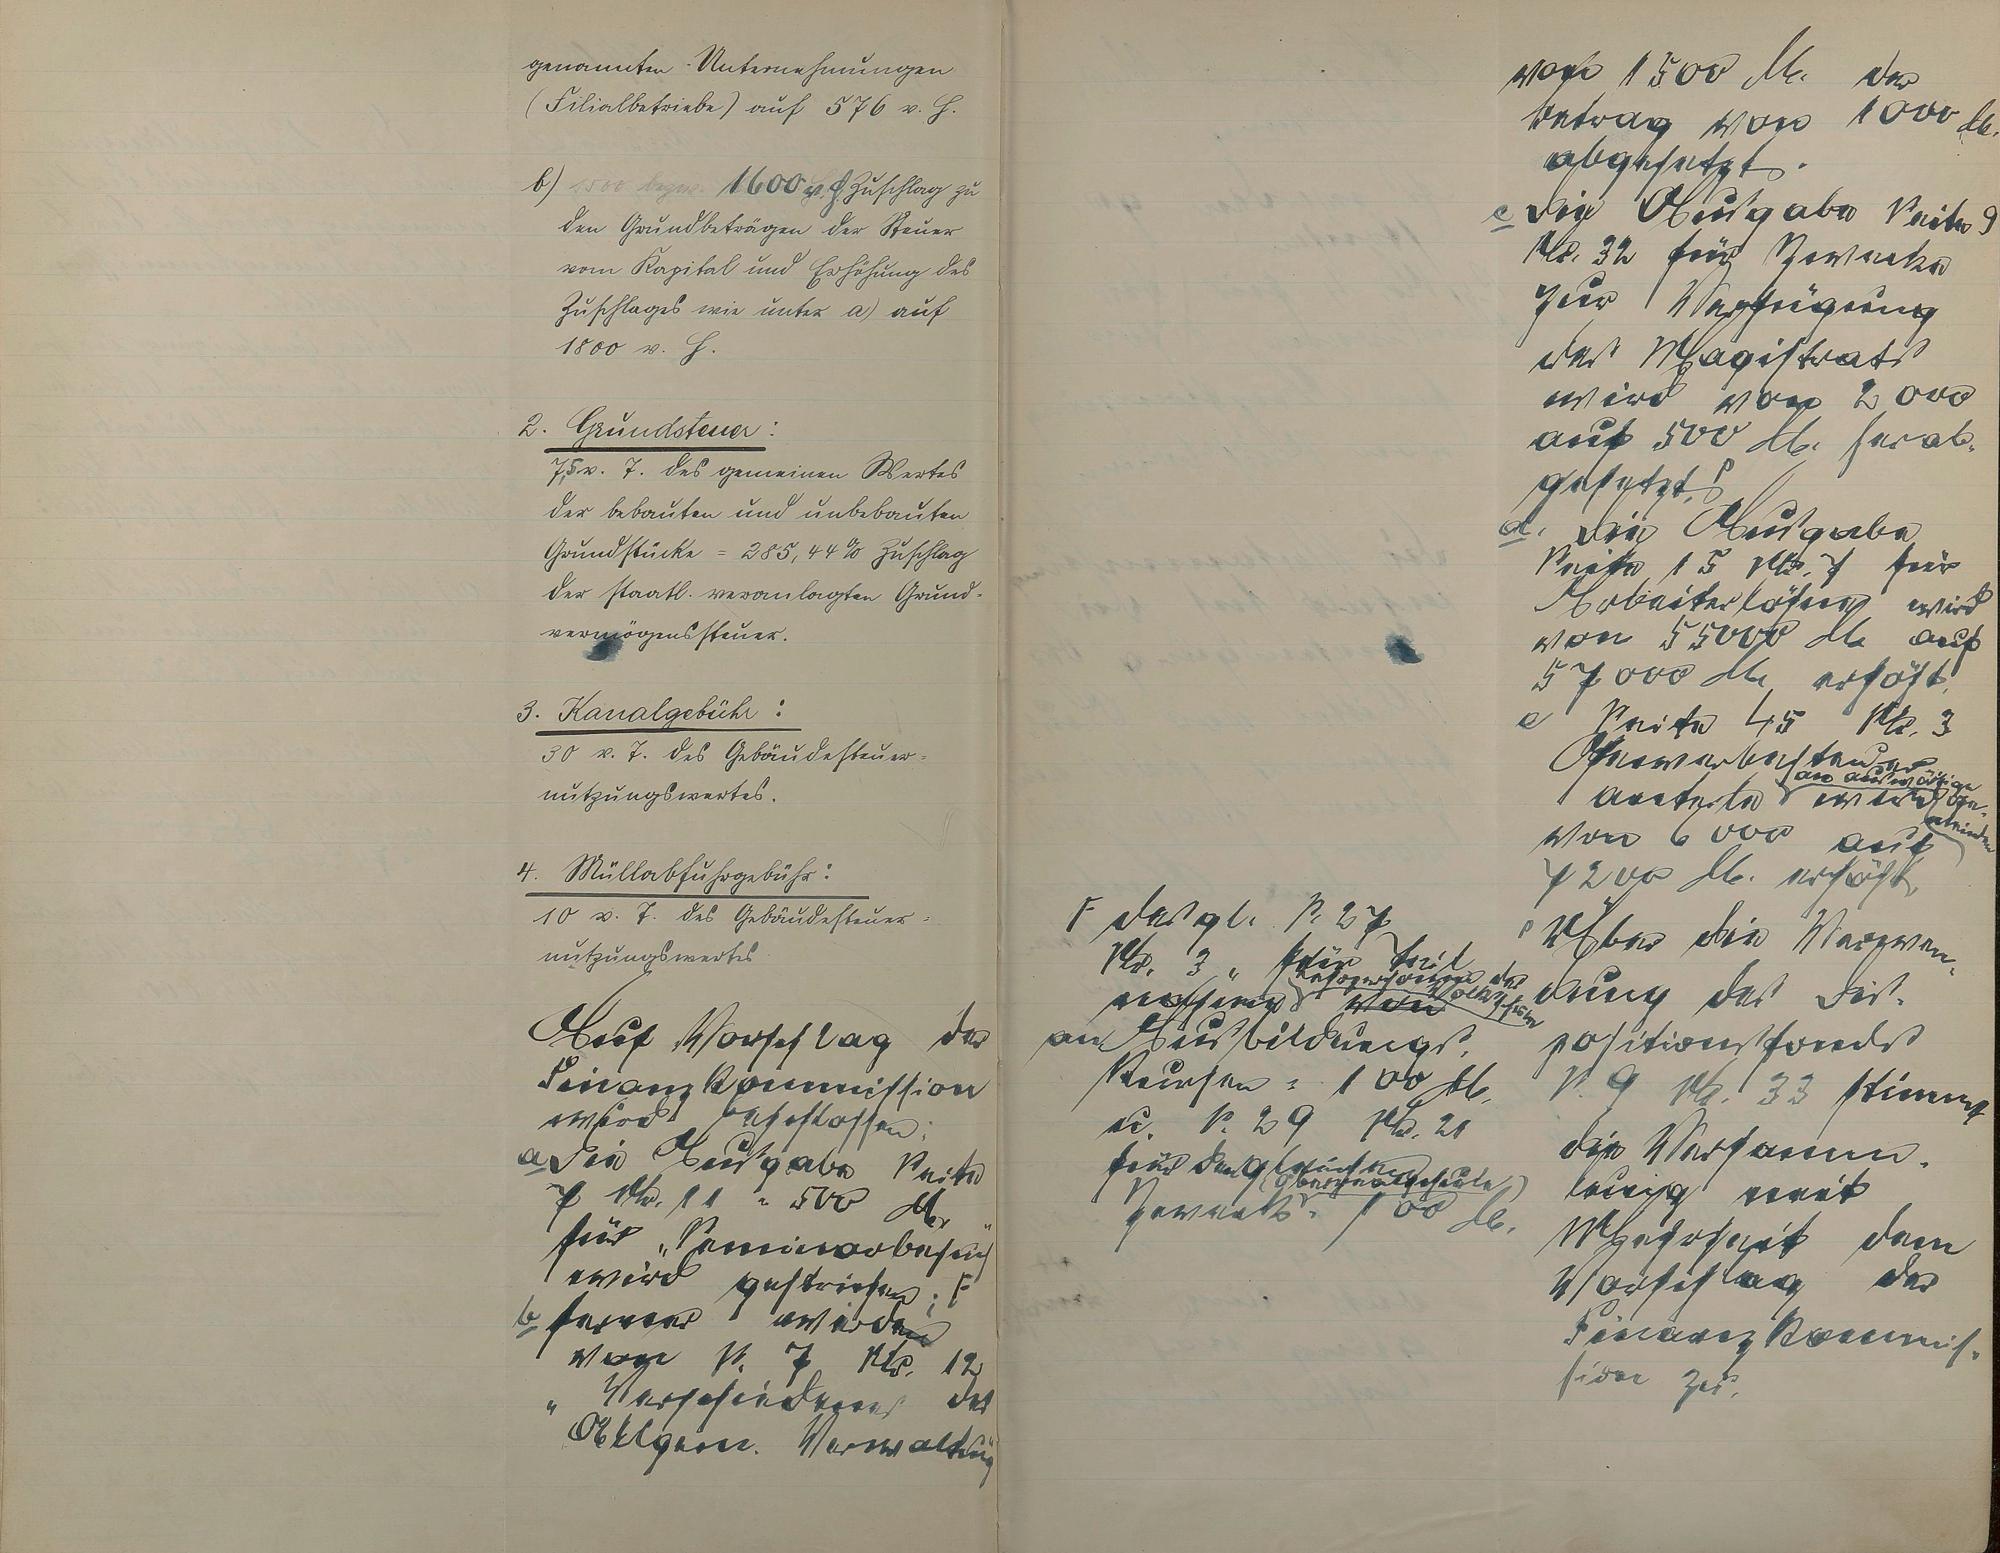 genannten Unternehmungen
(Filialbetriebe) auf 576 v. H.
b) 1500 bezw. 1600 v. H. Zuschlag zu
den Grundbeträgen der Steuer
vom Kapital und Erhöhung des
Zuschlages wie unter a) auf
1800 v. H.
2. Grundsteuer:
7,5 v. T. des gemeinen Wertes
der bebauten und unbebauten
Grundstücke = 285,44% Zuschlag
der staatl. veranlagten Grund-
vermögenssteuer.
3. Kanalgebühr:
30 v. T. des Gebäudesteuer-
nutzungswertes.
4. Müllabfuhrgebühr:
10 v. T. des Gebäudesteuer-
nutzungswertes
Auf Vorschlag der
Finanzkommission
wird beschlossen:
a Die Ausgabe Seite
7 Nr. 11 = 500 M.
für „Seminarbesuch"
wird gestrichen; F
b ferner werden
von S. 7 Nr. 12
„Verschiedenes der
Allgem. Verwaltung
F desgl. S. 27
Nr. 3 „ für Teil
nahme des
Lehrpersonals der
Volksschulen
an Ausbildungs-
kursen = 100 M.
u. S. 29 Nr. 21
für den gleichen
(Oberrealschule)
Zweck = 100 M.
von 1500 M. der
Betrag von 1000 M.
abgesetzt.
c Die Ausgabe Seite 9
Nr. 32 für Zwecke
zur Verfügung
des Magistrats
wird von 2000
auf 500 M. herab-
gesetzt.
d. Die Ausgabe
Seite 15 Nr. 7 für
Arbeiterlöhne wird
von 55000 M. auf
57000 M. erhöht.
e Seite 45 Nr. 3
Gewerbesteuer
anteile an auswärtige Ge-
meinden wird
von 6000 auf
7200 M. erhöht.
Über die Verwen-
dung des Dis-
positionsfonds
S. 9 Nr. 33 stimmt
die Versamm-
lung mit
Mehrheit dem
Vorschlag der
Finanzkommis-
sion zu.